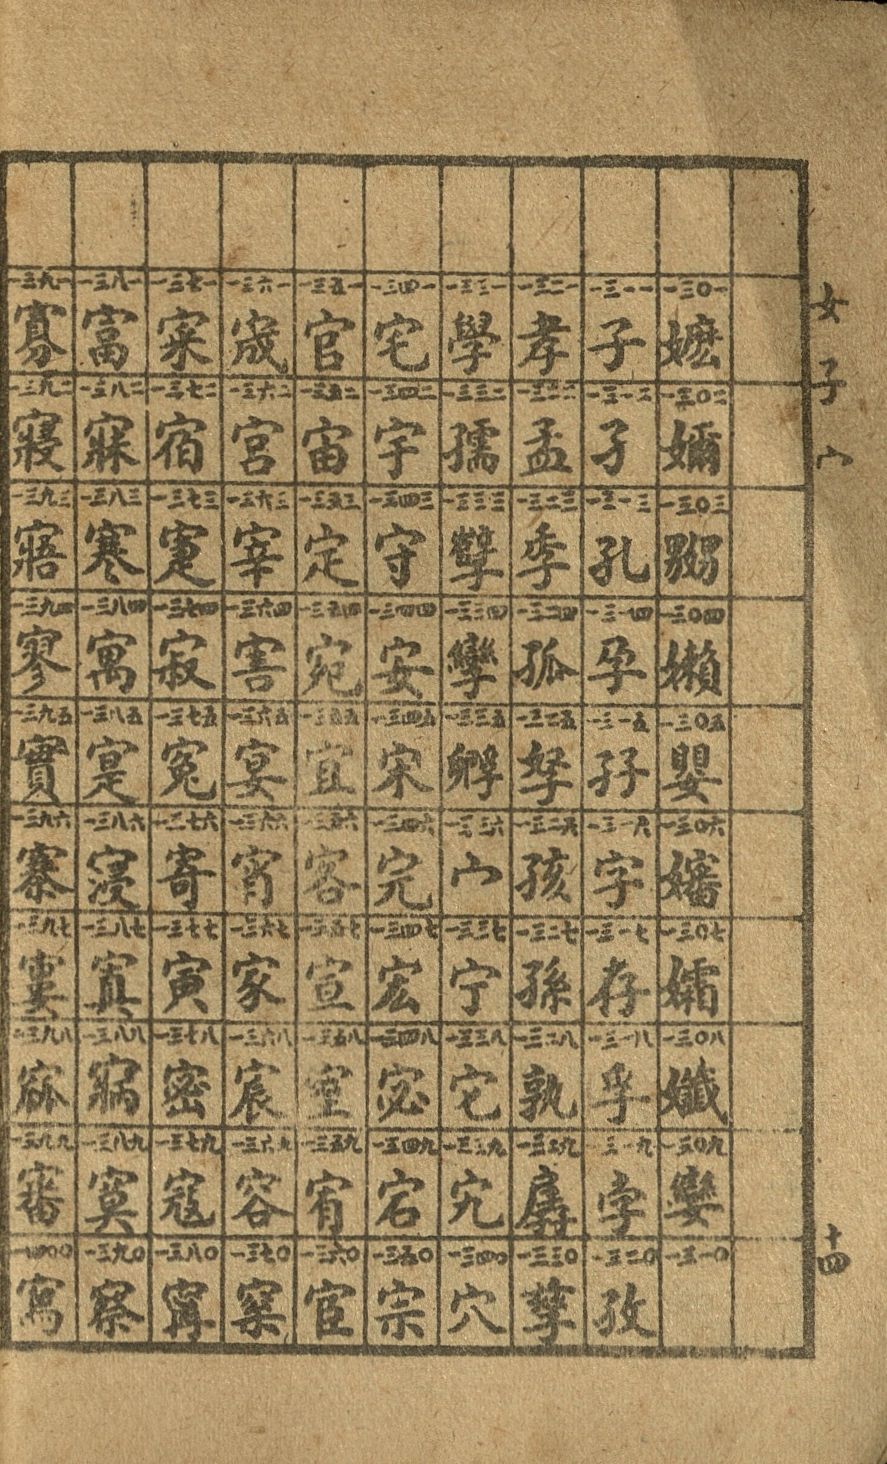 女子宀
十四
一三〇一 嬤 一三〇二 嬭 一三〇三 嬲 一三〇四 嬾 一三〇五 嬰 一三〇六 嬸 一三〇七 孀 一三〇八 孅 一三〇九 孌 一三一〇
一三一一 子 一三一二 孑 一三一三 孔 一三一四 孕 一三一五 孖 一三一六 字 一三一七 存 一三一八 孚 一三一九 孛 一三二〇 孜
一三二一 孝 一三二二 孟 一三二三 季 一三二四 孤 一三二五 孥 一三二六 孩 一三二七 孫 一三二八 孰 一三二九 孱 一三三〇 孳
一三三一 學 一三三二 孺 一三三三 孽 一三三四 孿 一三三五 孵 一三三六 宀 一三三七 宁 一三三八 它 一三三九 宄 一三四〇 宂
一三四一 宅 一三四二 宇 一三四三 守 一三四四 安 一三四五 宋 一三四六 完 一三四七 宏 一三四八 宓 一三四九 宕 一三五〇 宗
一三五一 官 一三五二 宙 一三五三 定 一三五四 宛 一三五五 宜 一三五六 客 一三五七 宣 一三五八 室 一三五九 宥 一三六〇 宦
一三六一 宬 一三六二 宮 一三六三 宰 一三六四 害 一三六五 宴 一三六六 宵 一三六七 家 一三六八 宸 一三六九 容 一三七〇
一三七一 寀 一三七二 宿 一三七三 寁 一三七四 寂 一三七五 寃 一三七六 寄 一三七七 寅 一三七八 密 一三七九 寇 一三八〇 甯
一三八一 富 一三八二 寐 一三八三 寒 一三八四 寓 一三八五 寔 一三八六 寖 一三八七 寘 一三八八 寎 一三八九 寞 一三九〇 察
一三九一 寡 一三九二 寢 一三九三 寤 一三九四 寥 一三九五 實 一三九六 寨 一三九七 寠 一三九八 一三九九 審 一四〇〇 寫